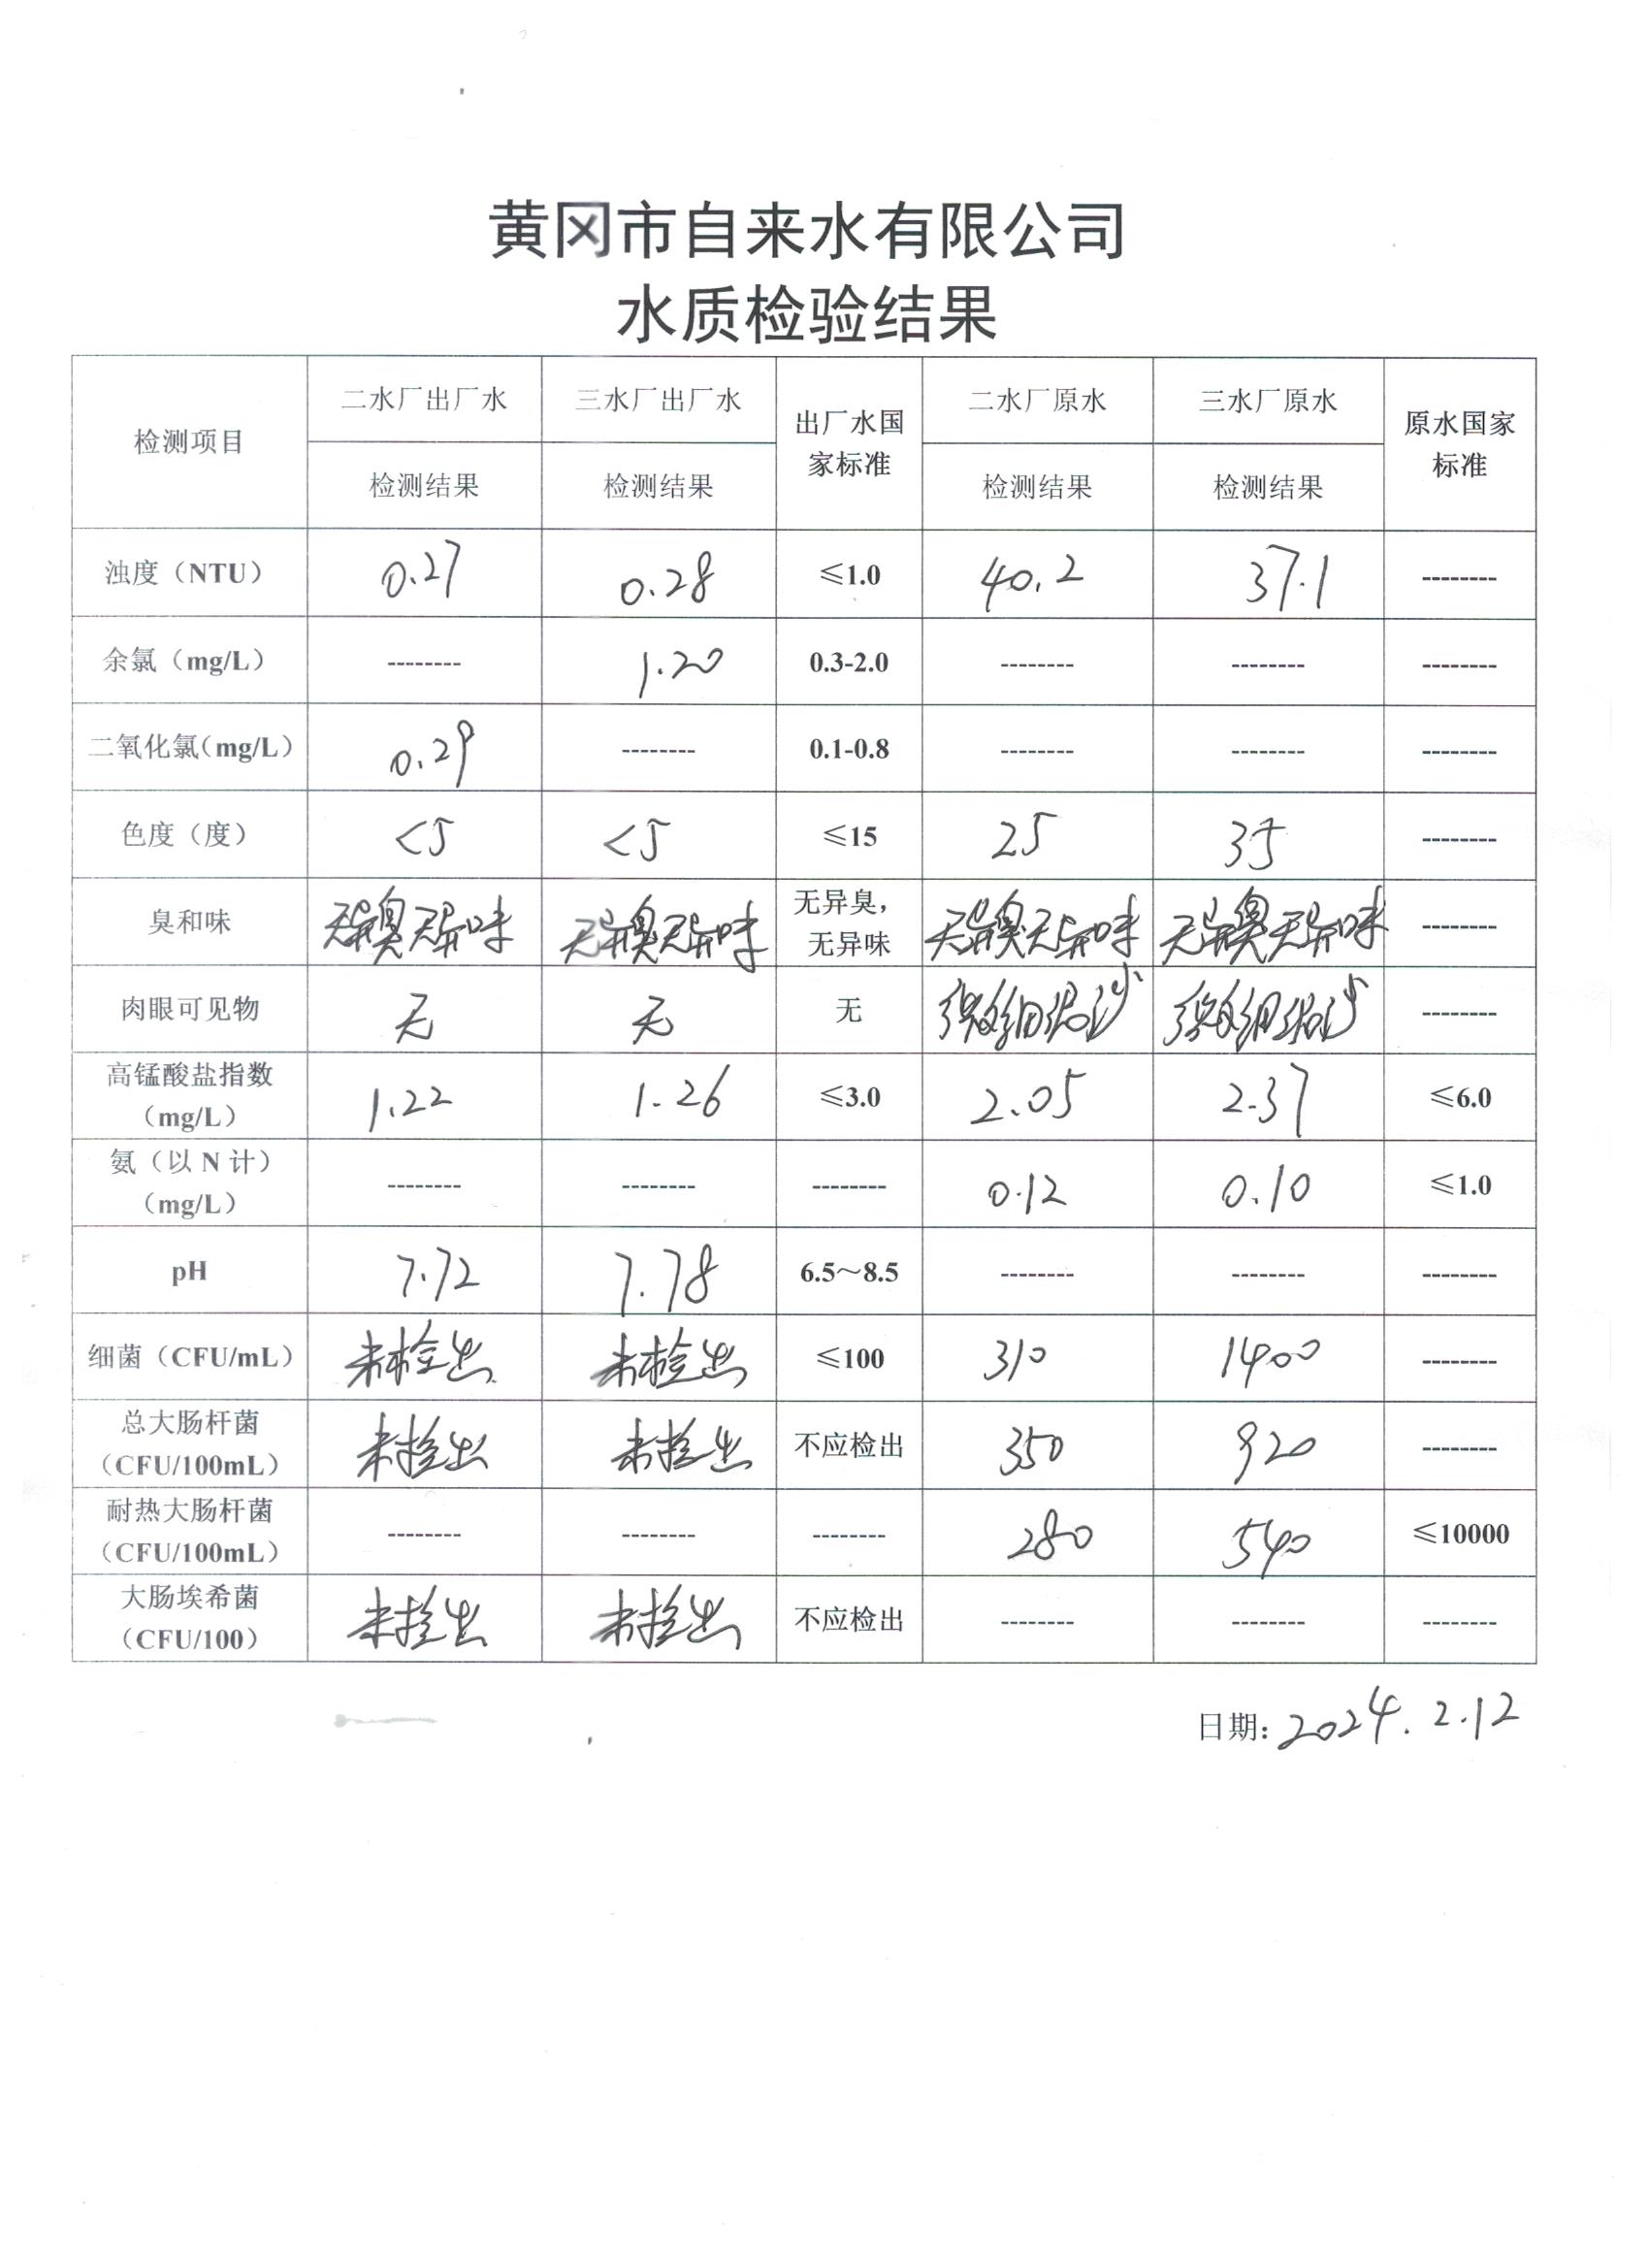 黄冈市自来水有限公司
水质检验结果
检测项目 二水厂出厂水 三水厂出厂水 出厂水国家标准 二水厂原水 三水厂原水 原水国家标准
检测结果 检测结果 检测结果 检测结果
浊度（NTU） 0.27 0.28 ≤1.0 40.2 37.1 --------
余氯（mg/L） -------- 1.20 0.3-2.0 -------- -------- --------
二氧化氯（mg/L） 0.29 -------- 0.1-0.8 -------- -------- --------
色度（度） <5 <5 ≤15 25 35 --------
臭和味 无异臭无异味 无异臭无异味 无异臭，无异味 无异臭无异味 无异臭无异味 --------
肉眼可见物 无 无 无 微细泥沙 微细泥沙 --------
高锰酸盐指数（mg/L） 1.22 1.26 ≤3.0 2.05 2.37 ≤6.0
氨（以 N 计）（mg/L） -------- -------- -------- 0.12 0.10 ≤1.0
pH 7.72 7.78 6.5～8.5 -------- -------- --------
细菌（CFU/mL） 未检出 未检出 ≤100 310 1400 --------
总大肠杆菌（CFU/100mL） 未检出 未检出 不应检出 350 920 --------
耐热大肠杆菌（CFU/100mL） -------- -------- -------- 280 540 ≤10000
大肠埃希菌（CFU/100） 未检出 未检出 不应检出 -------- -------- --------
日期: 2024.2.12